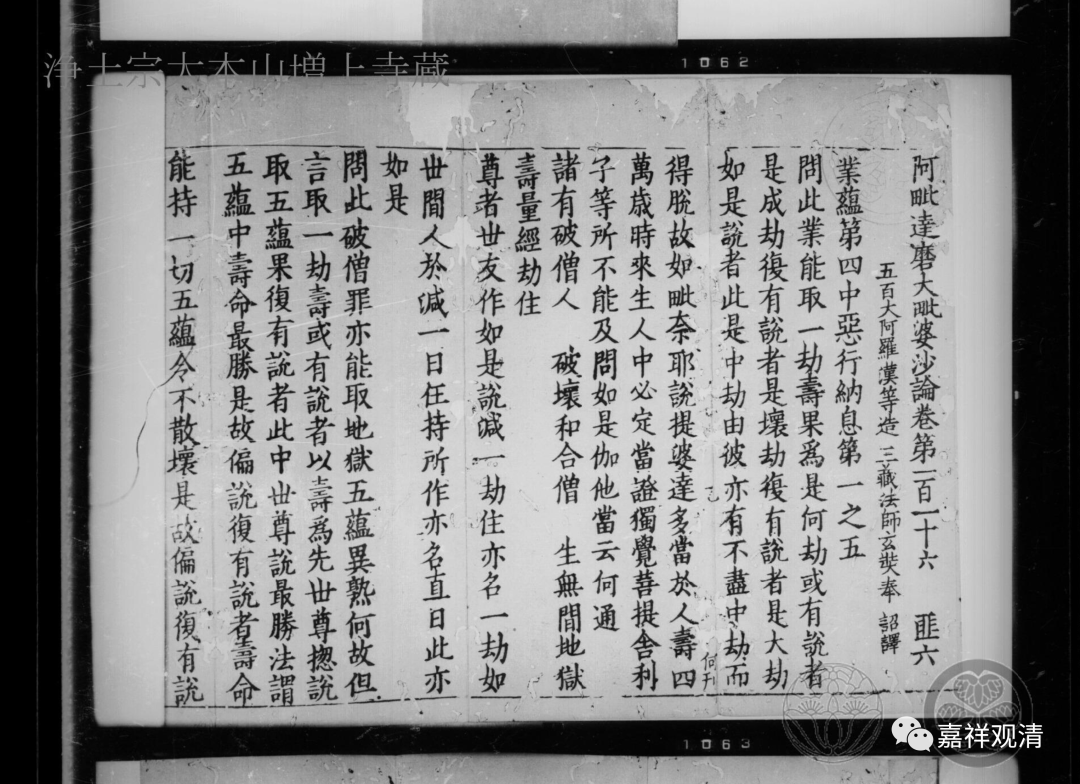 1062
浄土宗大本山増上寺蔵
阿毗達磨大毗婆沙論卷第一百一十六 匪六
五百大阿羅漢等造 三藏法師玄奘奉 詔譯
業蘊第四中惡行納息第一之五
問此業能取一劫壽果爲是何劫或有說者
是成劫復有說者是壞劫復有說者是大劫
如是說者此是中劫由彼亦有不盡中劫而
得脫故如毗奈耶說提婆達多當於人壽四
萬歲時來生人中必定當證獨覺菩提舍利
子等所不能及問如是伽他當云何通
諸有破僧人 破壞和合僧 生無間地獄
壽量經劫住
尊者世友作如是說減一劫住亦名一劫如
世間人於減一日任持所作亦名直日此亦
如是
問此破僧罪亦能取地獄五蘊異熟何故但
言取一劫壽或有說者以壽爲先世尊揔說
取五蘊果復有說者此中世尊說最勝法謂
五蘊中壽命最勝是故偏說復有說者壽命
能持一切五蘊令不散壞是故偏說復有說
1063
嘉祥观清